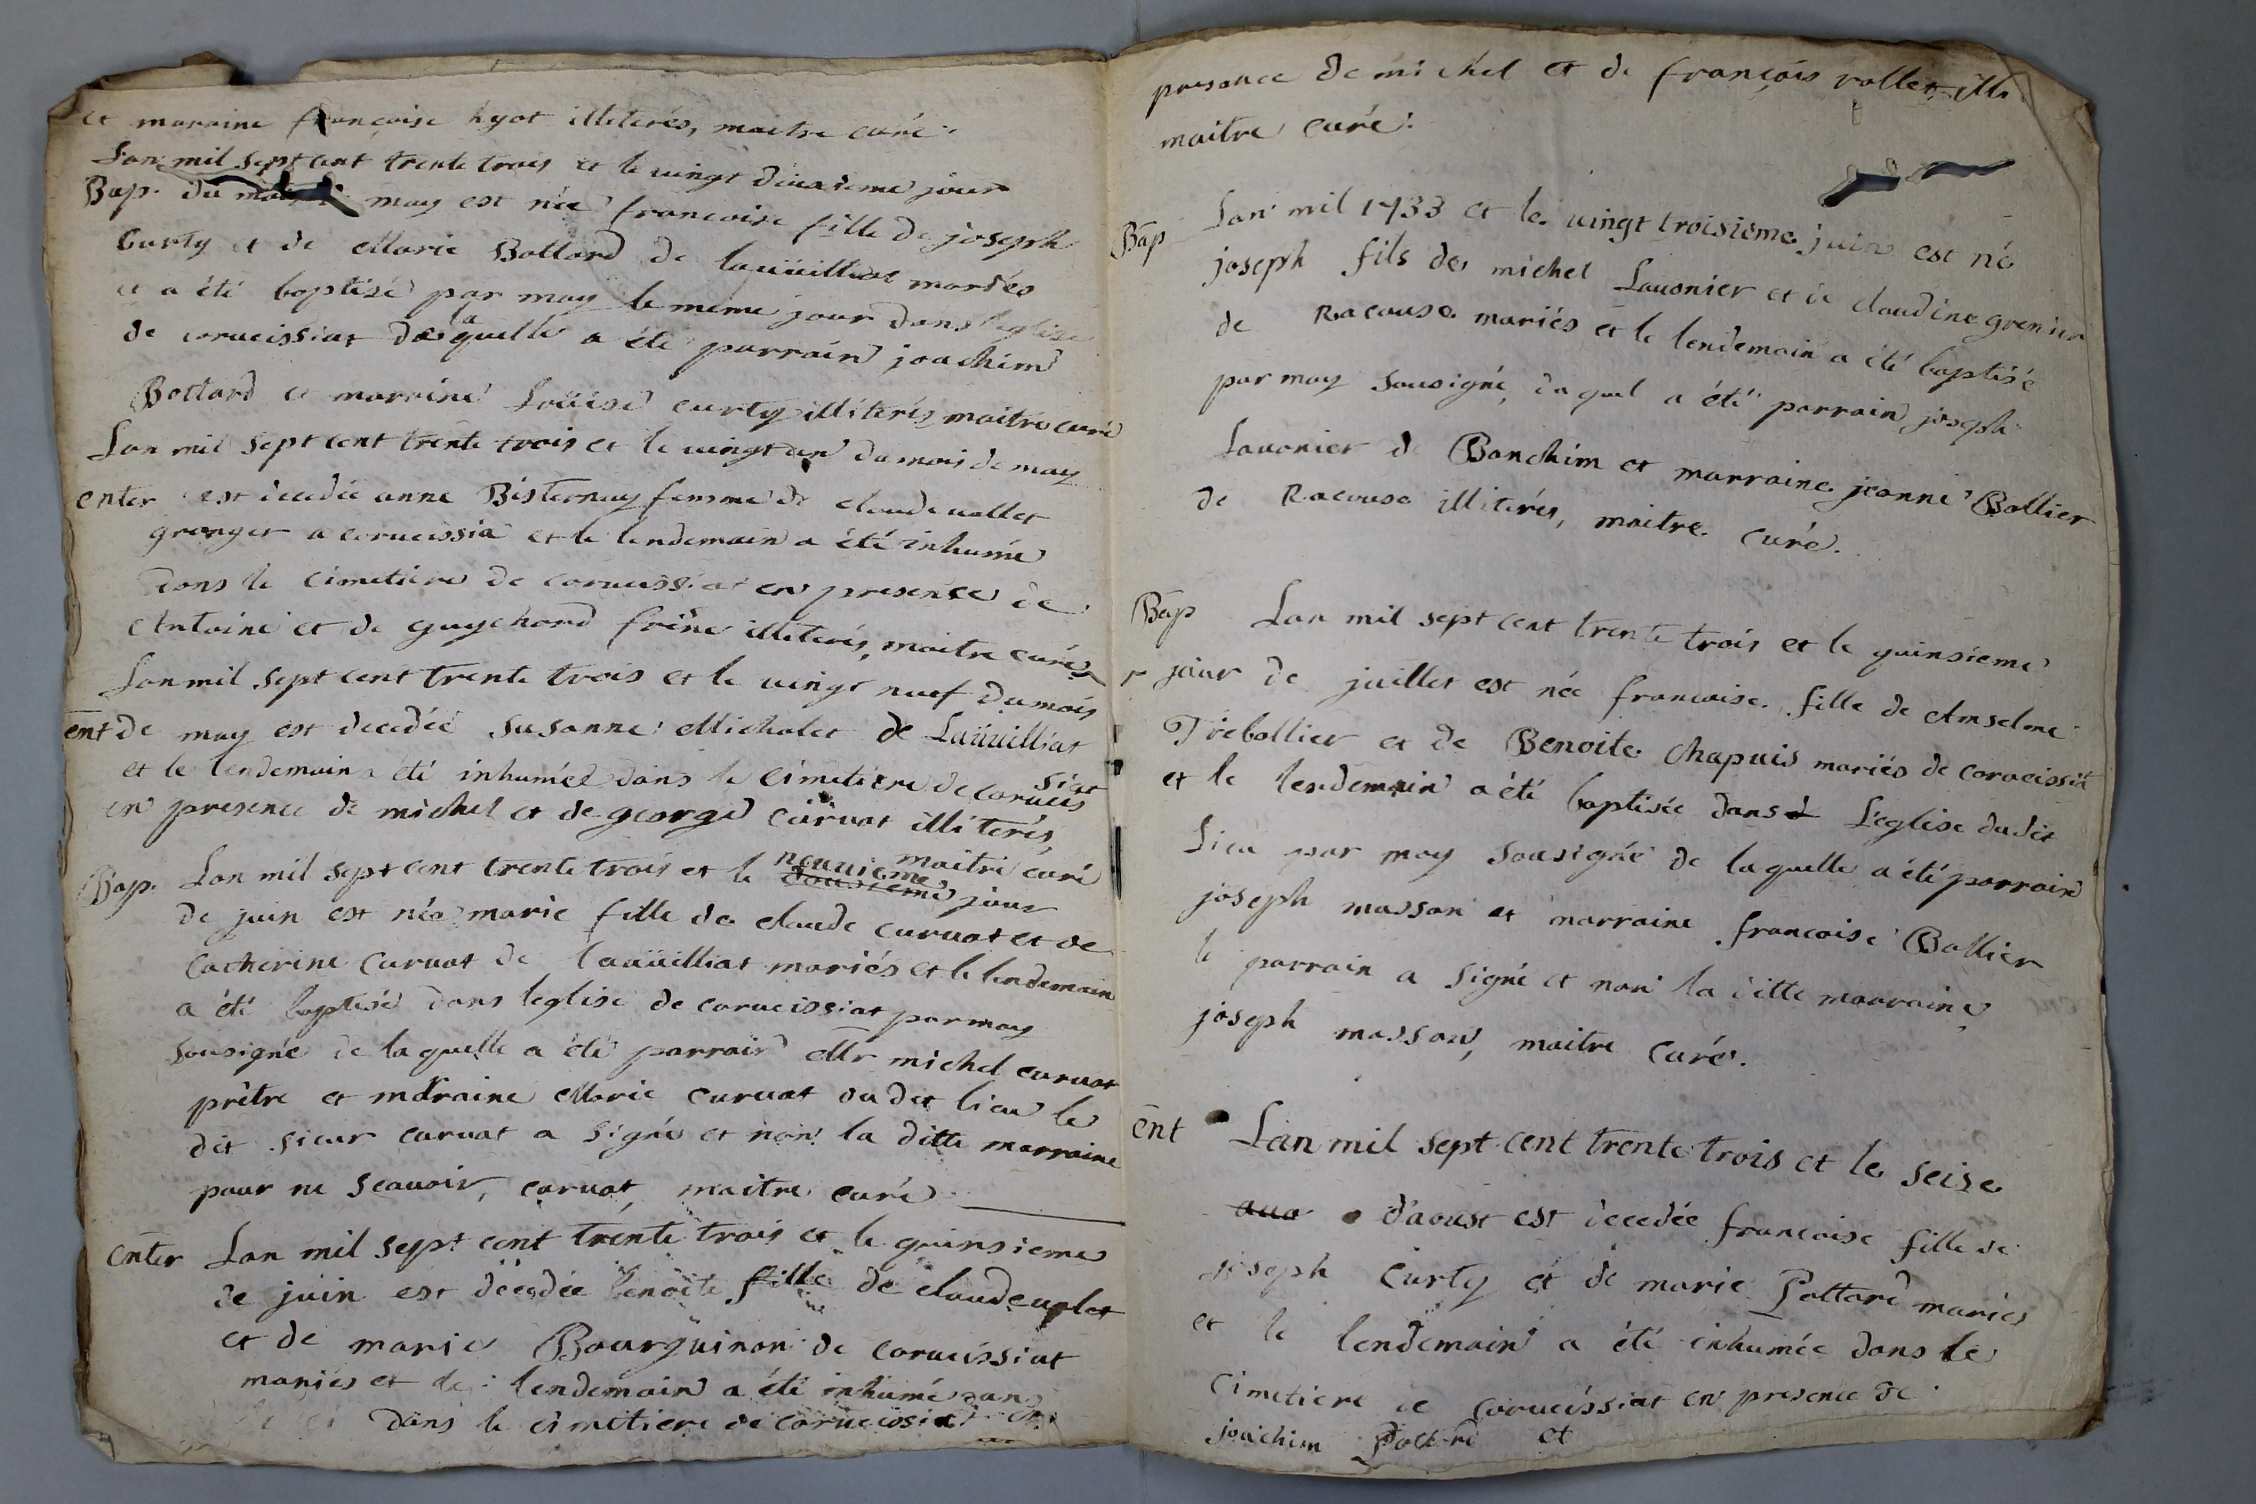 et maraine françoise hyot illiterés, maitre curé.
Lan mil sept cent trente trois et le vingt deuxieme jour
Bap. du mois de may est née francoise fille de joseph
Curty et de Marie Bottard de lauüilliat mariés
et a été baptisé par moy le meme jour dans leglise
de corveissiat de la quelle a été parrain joachim
Bottard et marraine Loüise curty illiterés, maitre curé
Lan mil sept cent trente trois et le vingt un du mois de may
enter est decedée anne Bisternay femme de claude vallet
granger a corveissia et le lendemain a été inhumée
dans le cimetiere de corveissiat en presence de
Antoine et de guychard frêne illiterés, maitre curé
Lan mil sept cent trente trois et le vingt neuf du mois
ent de may est decedée susanne Michalet de Laüuilliat
et le lendemain a été inhumée dans le cimetiere de corveissiat
en presence de michel et de george curvat illiterés,
maitre curé
Bap. Lan mil sept cent trente trois et le neuvieme jour
de juin est née marie fille de claude curvat et de
catherine curvat de laüuilliat mariés et le lendemain
a été baptisé dans leglise de corveissiat par moy
sousigné de la quelle a été parrain Mr michel curvat
prêtre et maraine Marie curvat dudit lieu le
dit sieur curvat a signé et non la ditte marraine
pour ne scavoir, curvat, maitre curé
enter Lan mil sept cent trente trois et le quinsieme
de juin est décédée benoite fille de claude valet
et de marie Bourguinon de corveissiat
mariés et le lendemain a été inhumé dans
dans le cimetiere de corveissiat en
presance de michel et de françois vallet ille
maitre curé.
Bap Lan mil 1733 et le vingt troisieme juin est né
joseph fils de michel Lauonier et de claudine grenier
de Racouse mariés et le lendemain a été baptisé
par moy sousigné, du quel a été parrain joseph
Lauonier de Bonchim et marraine jeanne Bollier
de Racouse illiterés, maitre curé.
Bap Lan mil sept cent trente trois et le quinsieme
jour de juillet est née francoise fille de Anselme
Trebollier et de Benoite chapuis mariés de corveissiat
et le lendemain a été baptisée dans L'eglise dudit
Lieu par moy sousigné de la quelle a été parrain
joseph masson et marraine francoise Bollier
le parrain a signé et non la ditte marraine,
joseph masson, maitre curé.
ent Lan mil sept cent trente trois et le seise
d'aoust est decedée francoise fille de
joseph Curty et de marie Pottard mariés
et le lendemain a été inhumée dans le
cimetiere de corveissiat en presence de
joachim Pottard et